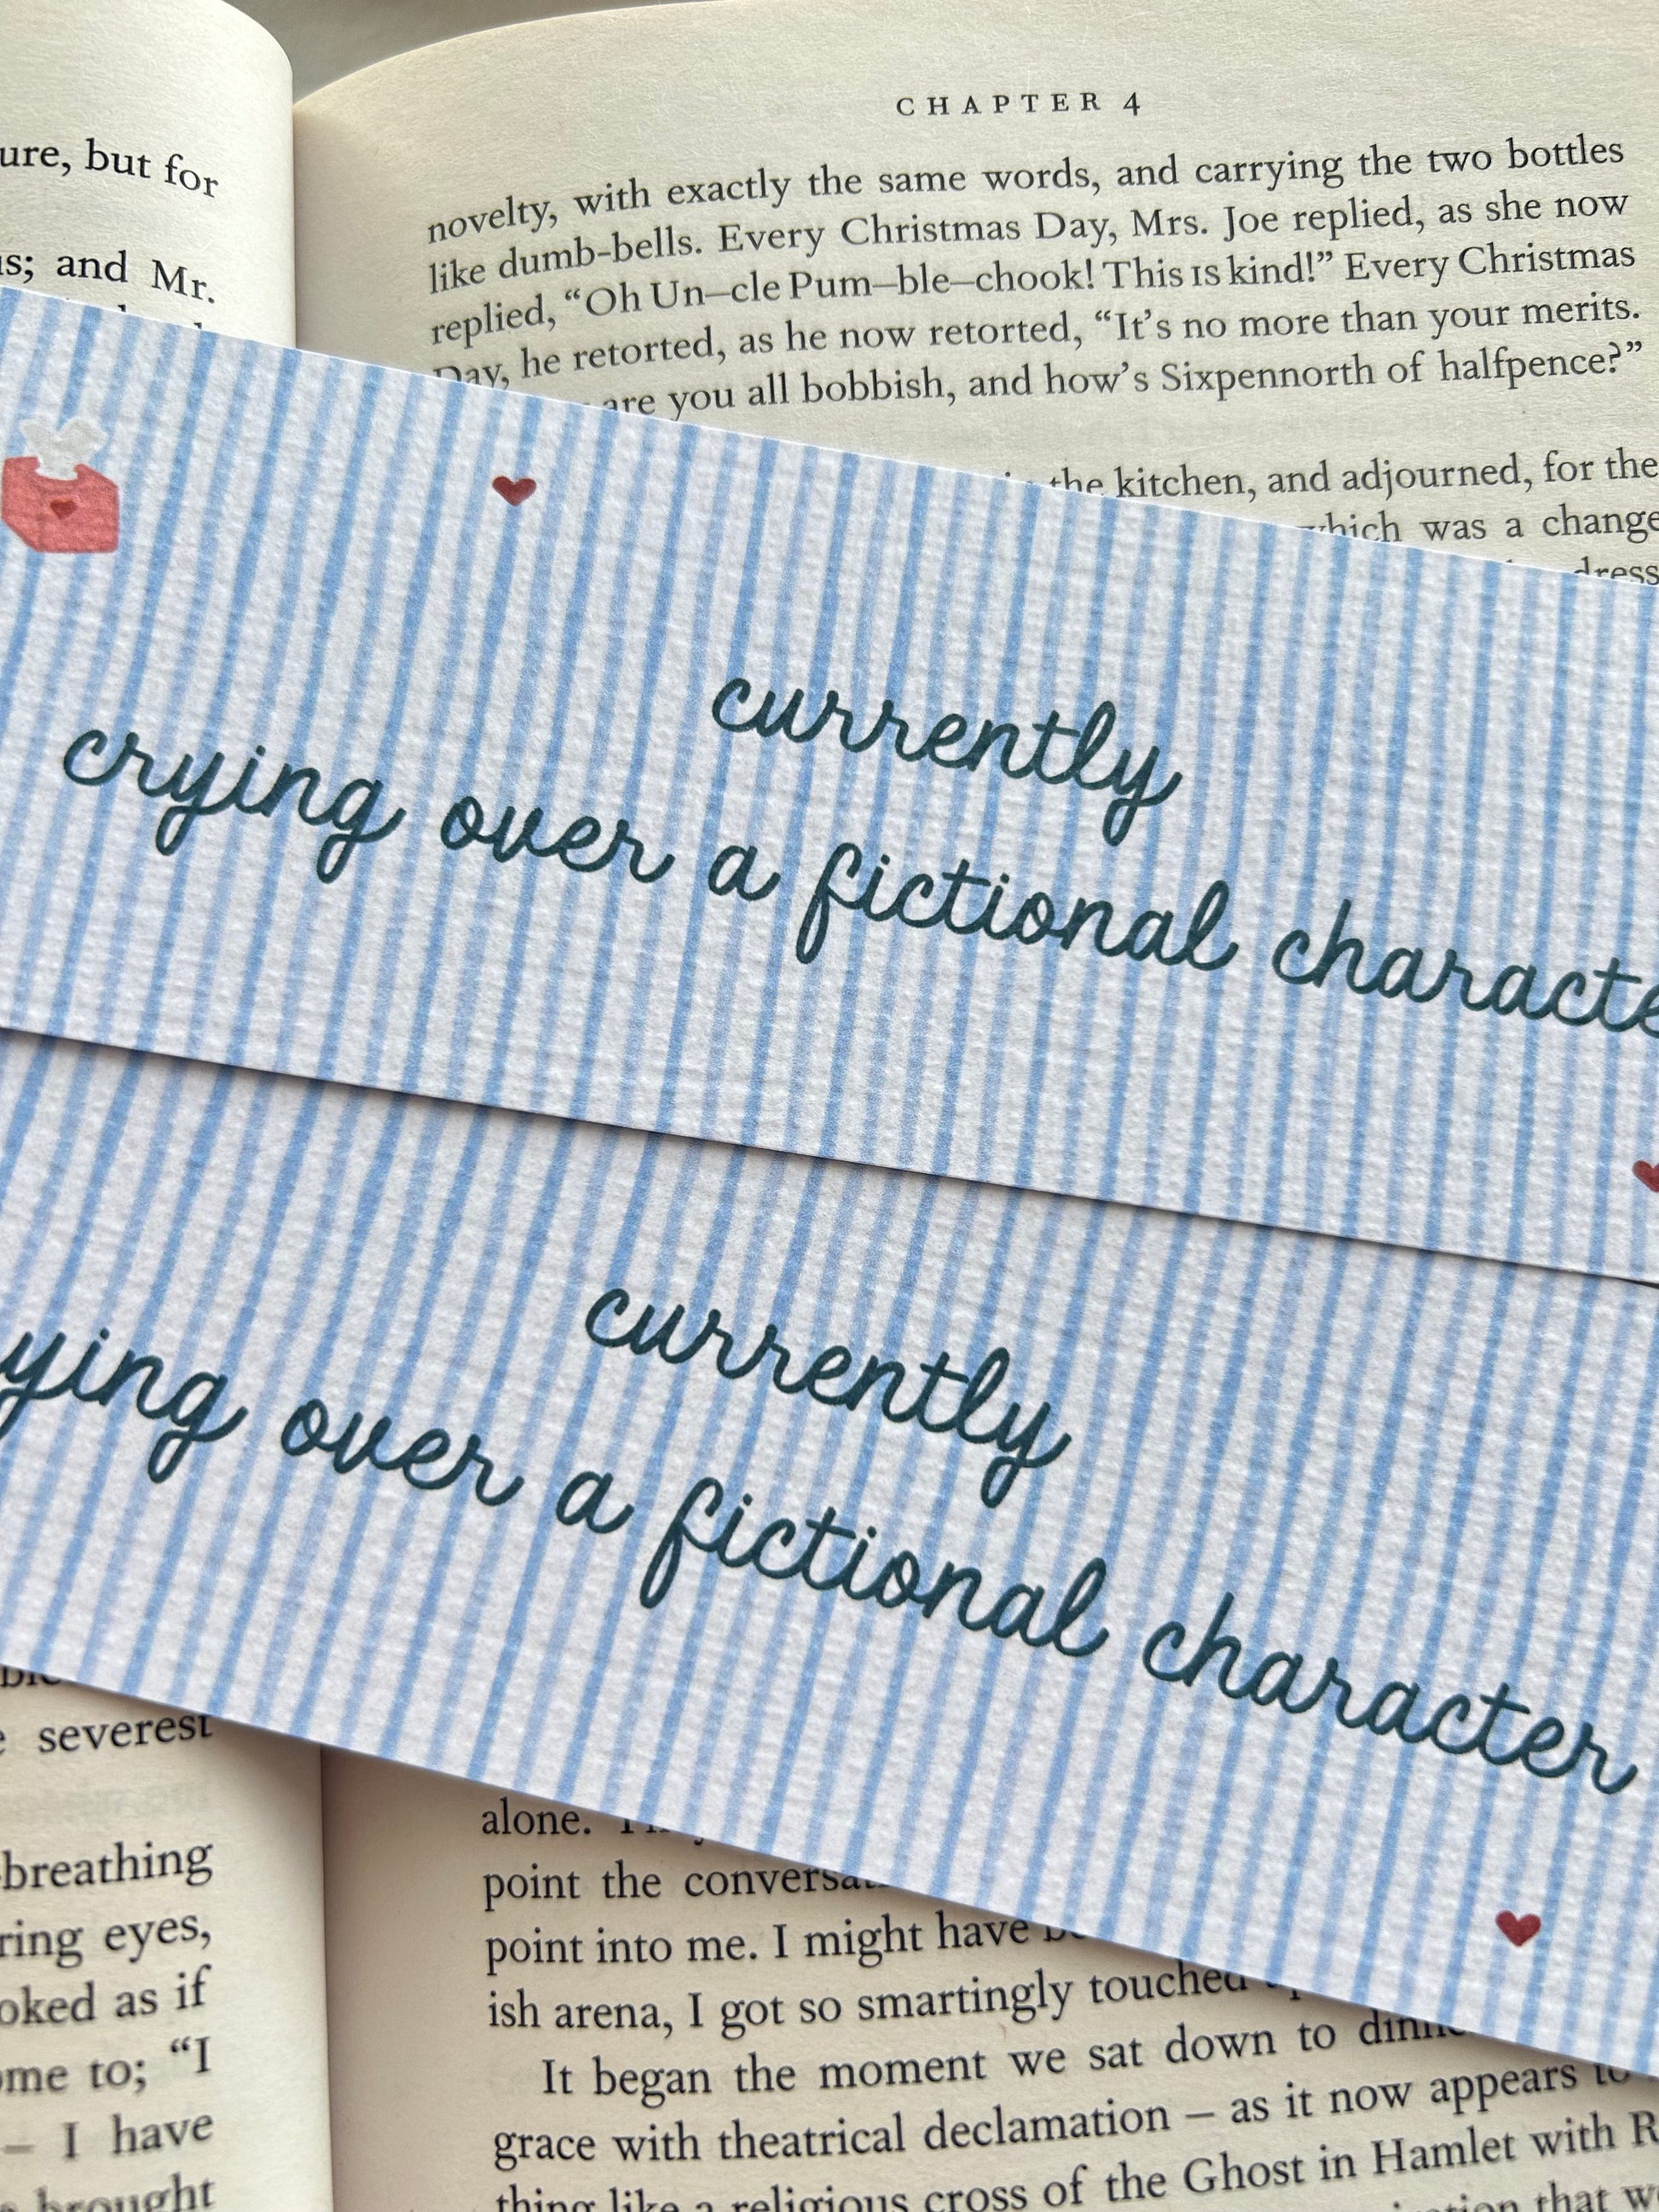 ure, but for
us; and Mr.
CHAPTER 4
novelty, with exactly the same words, and carrying the two bottles
like dumb-bells. Every Christmas Day, Mrs. Joe replied, as she now
replied, “Oh Un–cle Pum–ble–chook! This is kind!” Every Christmas
Day, he retorted, as he now retorted, “It’s no more than your merits.
are you all bobbish, and how’s Sixpennorth of halfpence?”
the kitchen, and adjourned, for the
which was a change
dress
currently
crying over a fictional characte
currently
ying over a fictional character
severest
breathing
ring eyes,
oked as if
ome to; “I
– I have
brought
alone.
point the conversa
point into me. I might have
ish arena, I got so smartingly touched
It began the moment we sat down to dinne
grace with theatrical declamation – as it now appears to
thing like a religious cross of the Ghost in Hamlet with R
that we